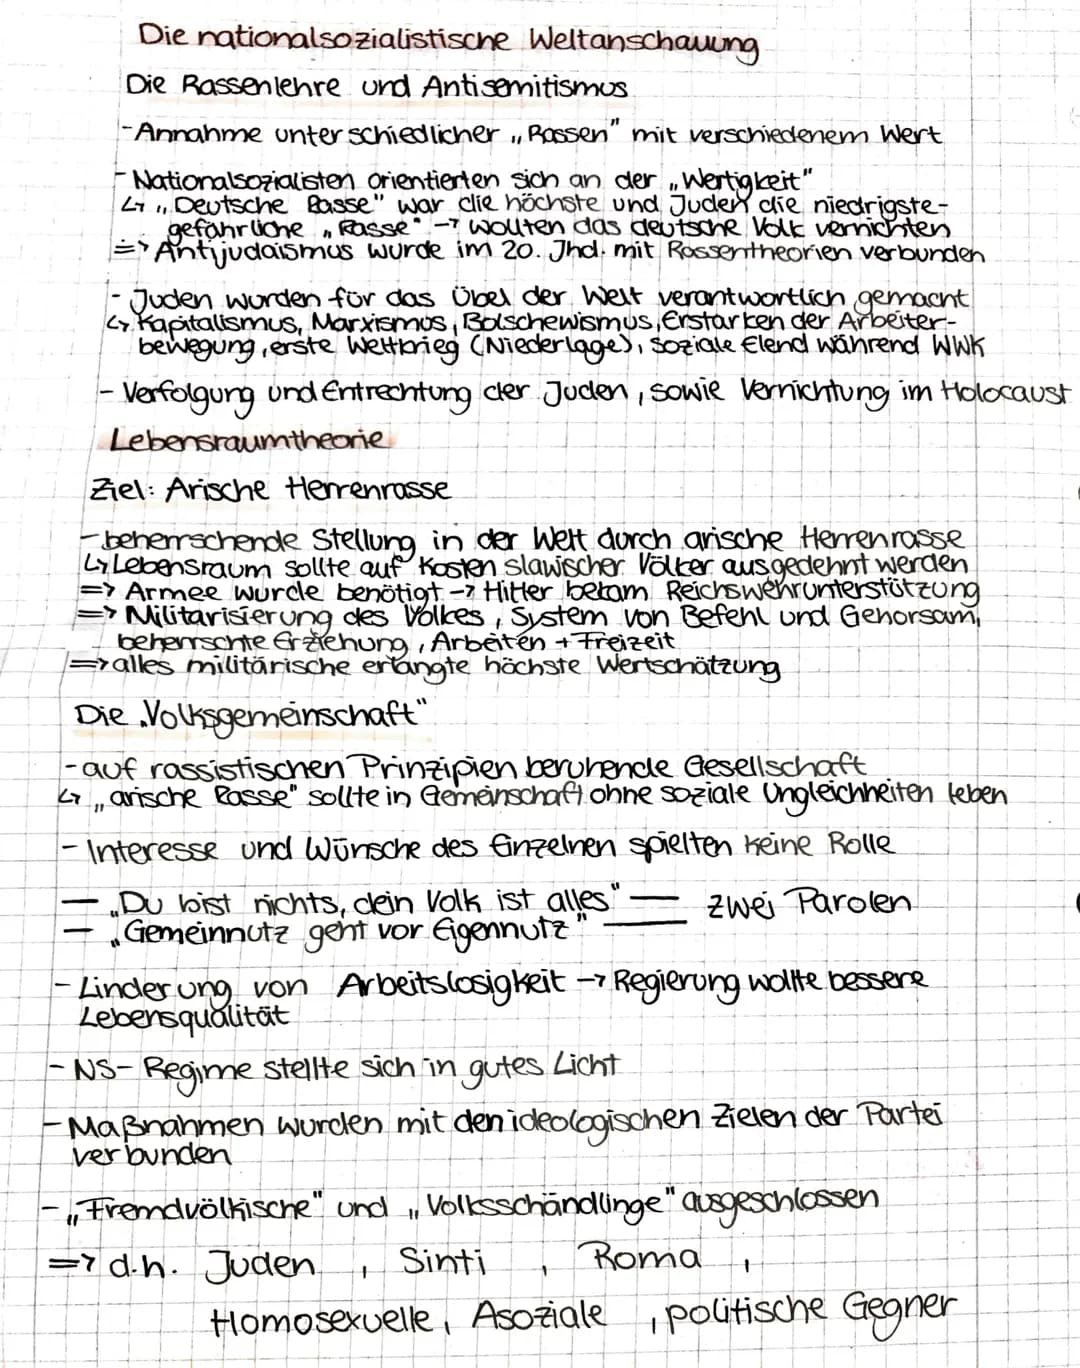 Die nationalsozialistische Weltanschauung
Die Rassenlehre und Antisemitismus
- Annahme unterschiedlicher „Rassen" mit verschiedenem Wert
- Nationalsozialisten orientierten sich an der „Wertigkeit"
↳ „Deutsche Rasse" war die höchste und Juden die niedrigste-
gefährliche „Rasse" -> wollten das deutsche Volk vernichten
=> Antijudaismus wurde im 20. Jhd. mit Rassentheorien verbunden
- Juden wurden für das Übel der Welt verantwortlich gemacht
↳ Kapitalismus, Marxismos, Bolschewismus, Erstarken der Arbeiter-
bewegung, erste Weltkrieg (Niederlage), soziale Elend während WWK
- Verfolgung und Entrechtung der Juden, sowie Vernichtung im Holocaust
Lebensraumtheorie
Ziel: Arische Herrenrasse
- beherrschende Stellung in der Welt durch arische Herrenrasse
↳ Lebensraum sollte auf Kosten slawischer Völker ausgedehnt werden
=> Armee wurde benötigt -> Hitler bekam Reichswehrunterstützung
=> Militarisierung des Volkes, System von Befehl und Gehorsam,
beherrschte Erziehung, Arbeiten + Freizeit
=> alles militärische erlangte höchste Wertschätzung
Die „Volksgemeinschaft"
- auf rassistischen Prinzipien beruhende Gesellschaft
↳ „arische Rasse" sollte in Gemeinschaft ohne soziale Ungleichheiten leben
- Interesse und Wünsche des Einzelnen spielten keine Rolle
— „Du bist nichts, dein Volk ist alles" — zwei Parolen
— „Gemeinnutz geht vor Eigennutz" —
- Linderung von Arbeitslosigkeit -> Regierung wollte bessere
Lebensqualität
- NS-Regime stellte sich in gutes Licht
- Maßnahmen wurden mit den ideologischen Zielen der Partei
verbunden
- „Fremdvölkische" und „Volksschändlinge" ausgeschlossen
=> d.h. Juden, Sinti, Roma,
Homosexuelle, Asoziale, politische Gegner